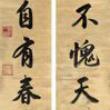 不愧天
自有春